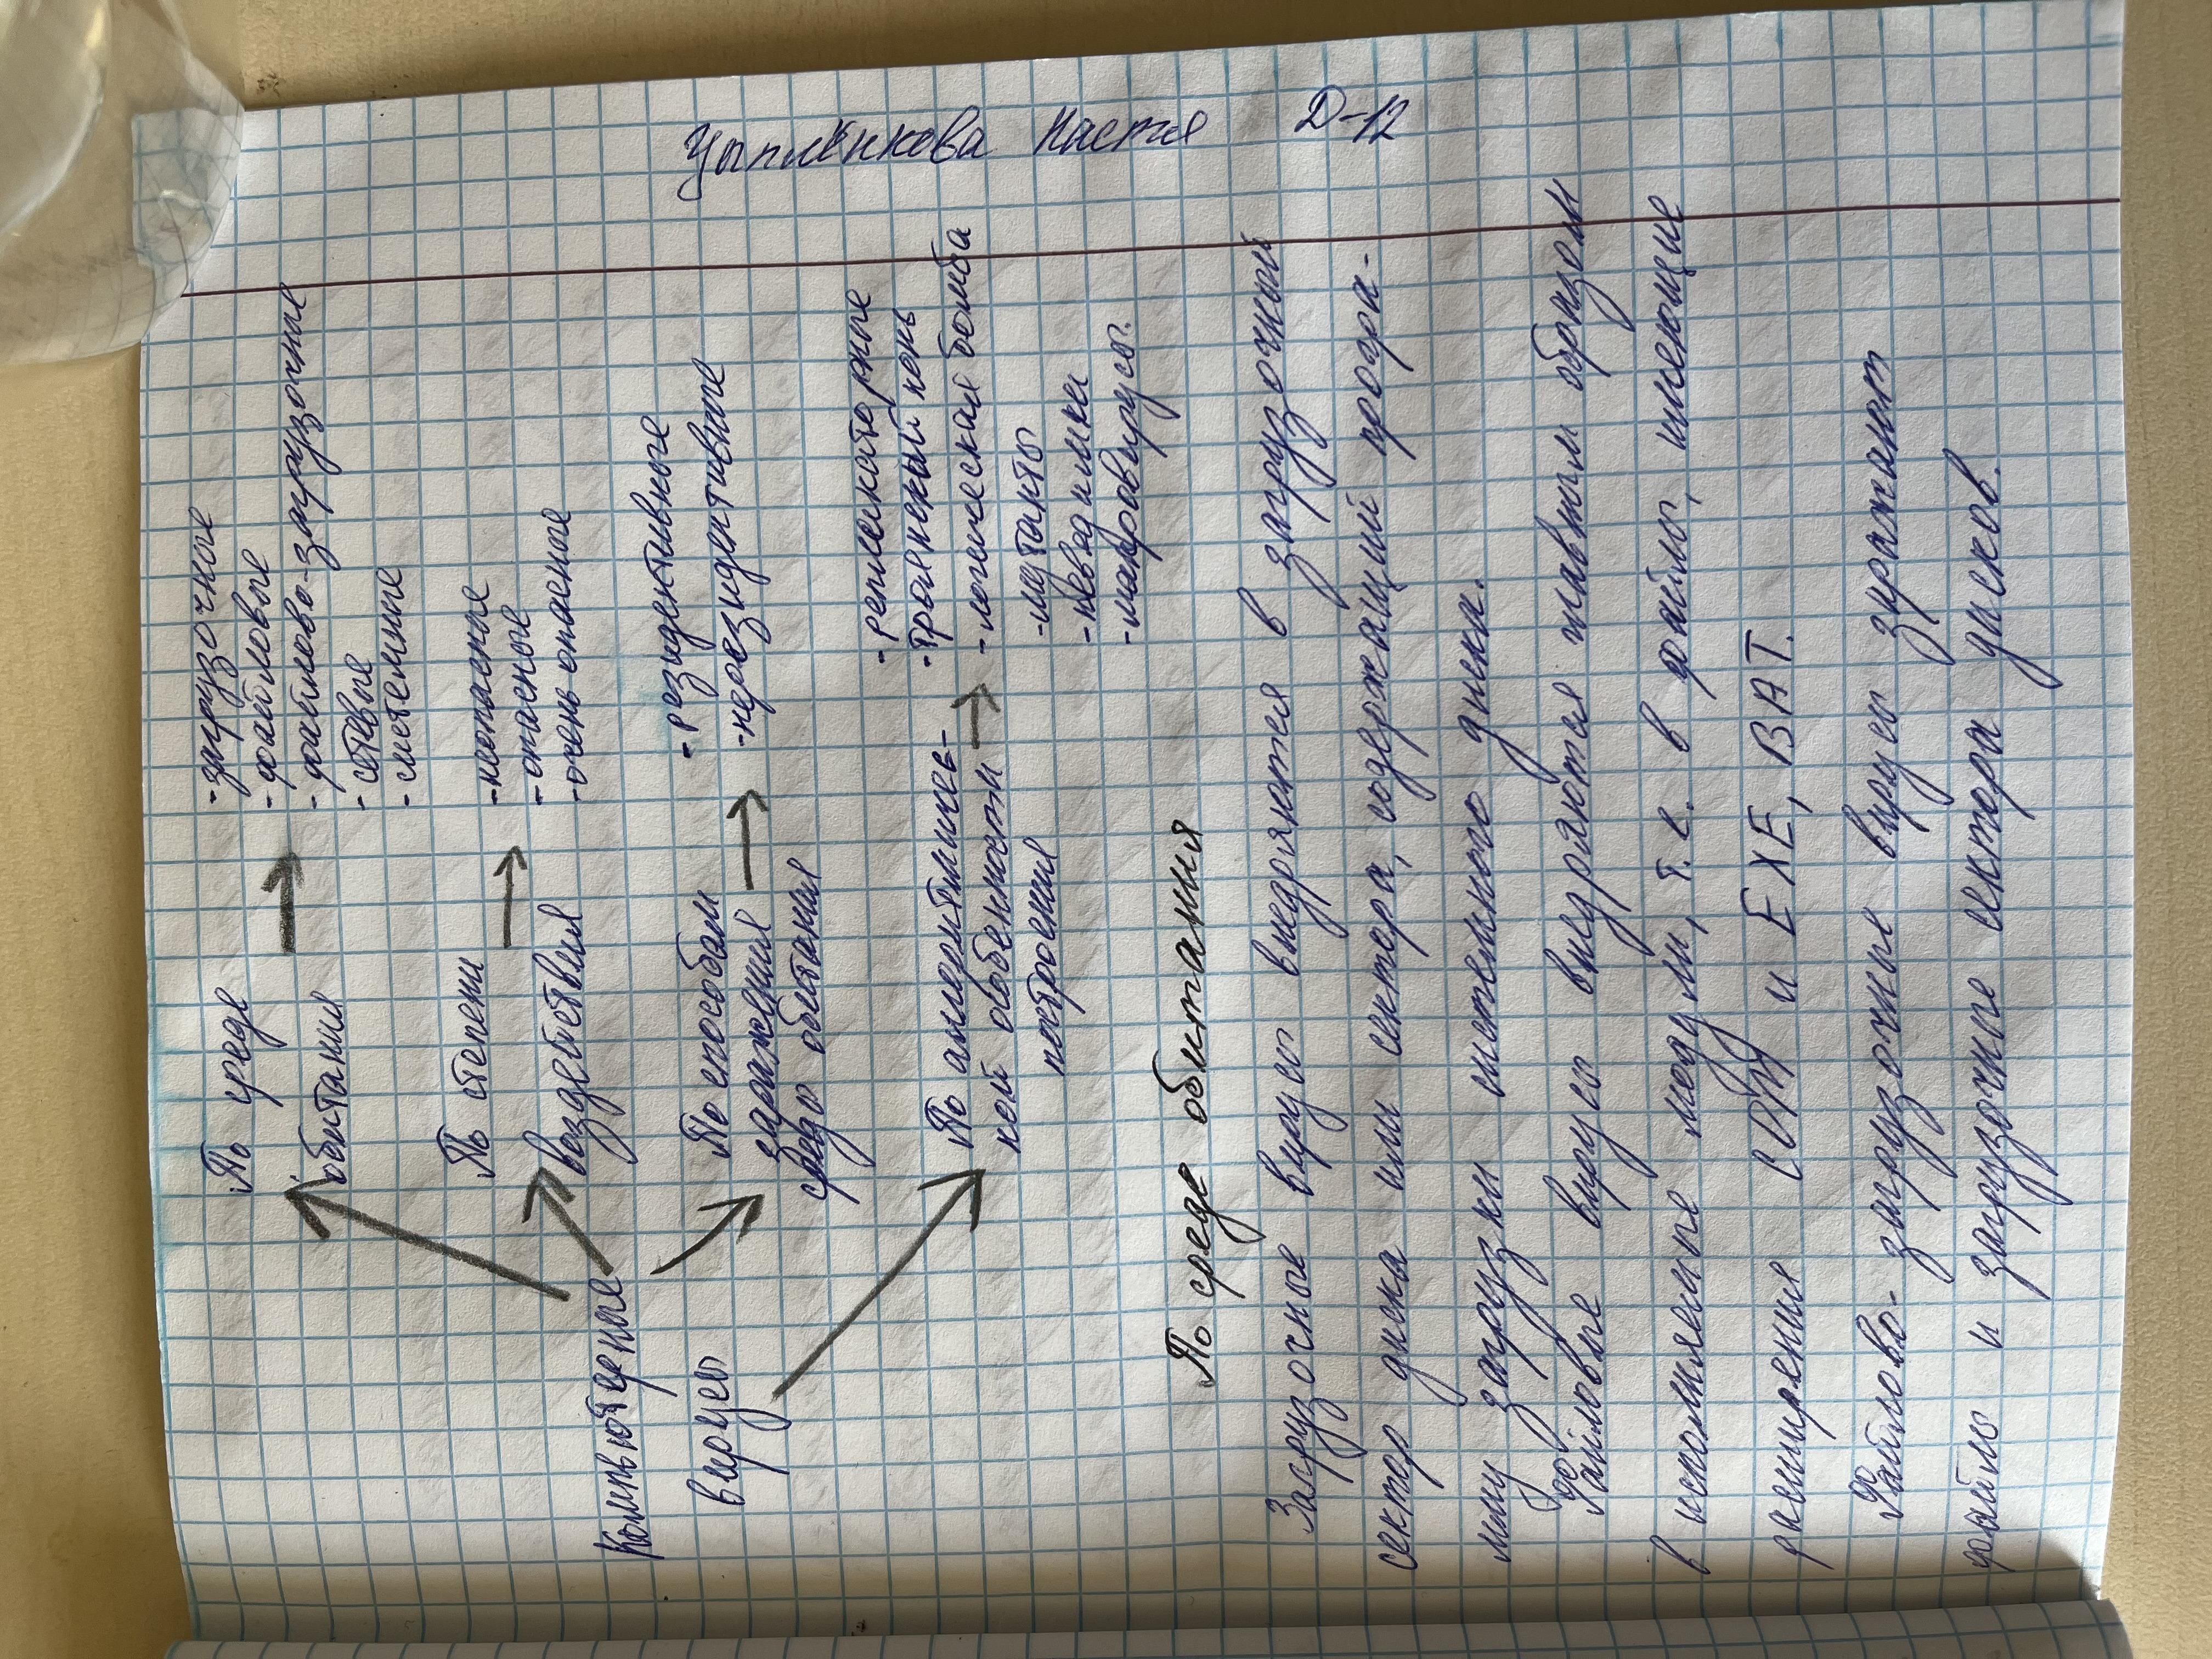 Цыплёнкова Настя Д-12
Компьютерные
вирусы
По среде
обитания
-загрузочное
-файловые
-файлово-загрузочные
-сетевые
-системные
По степени
воздействия
-неопасные
-опасные
-очень опасное
По способам
заражения
среды обитания
-резидентивное
-нерезидентивные
По алгоритмичес-
кой особенности
построения
-репликаторные
-троянский конь
-логическая бомба
-мутанты
-невидимки
-макровирусы.
По среде обитания
Загрузочные вирусы внедряются в загрузочный
сектор диска или сектора, содержащий програ-
мму загрузки системного диска.
Файловые вирусы внедряются главным образом
в исполняемые модули, т.е. в файлы, имеющие
расширения COM и EXE, BAT.
Файлово- загрузочные вирусы заражают
файлы и загрузочные сектора дисков.